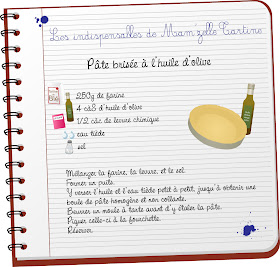 Les indispensables de Mam'zelle Tartine
Pâte brisée à l'huile d'olive
250g de farine
4 càS d'huile d'olive
1/2 càc de levure chimique
eau tiède
sel
Mélanger la farine, la levure, et le sel.
Former un puits.
Y verser l'huile et l'eau tiède petit à petit, jusqu'à obtenir une
boule de pâte homogène et non collante.
Beurrer un moule à tarte avant d'y étaler la pâte.
Piquer celle-ci à la fourchette.
Réserver.